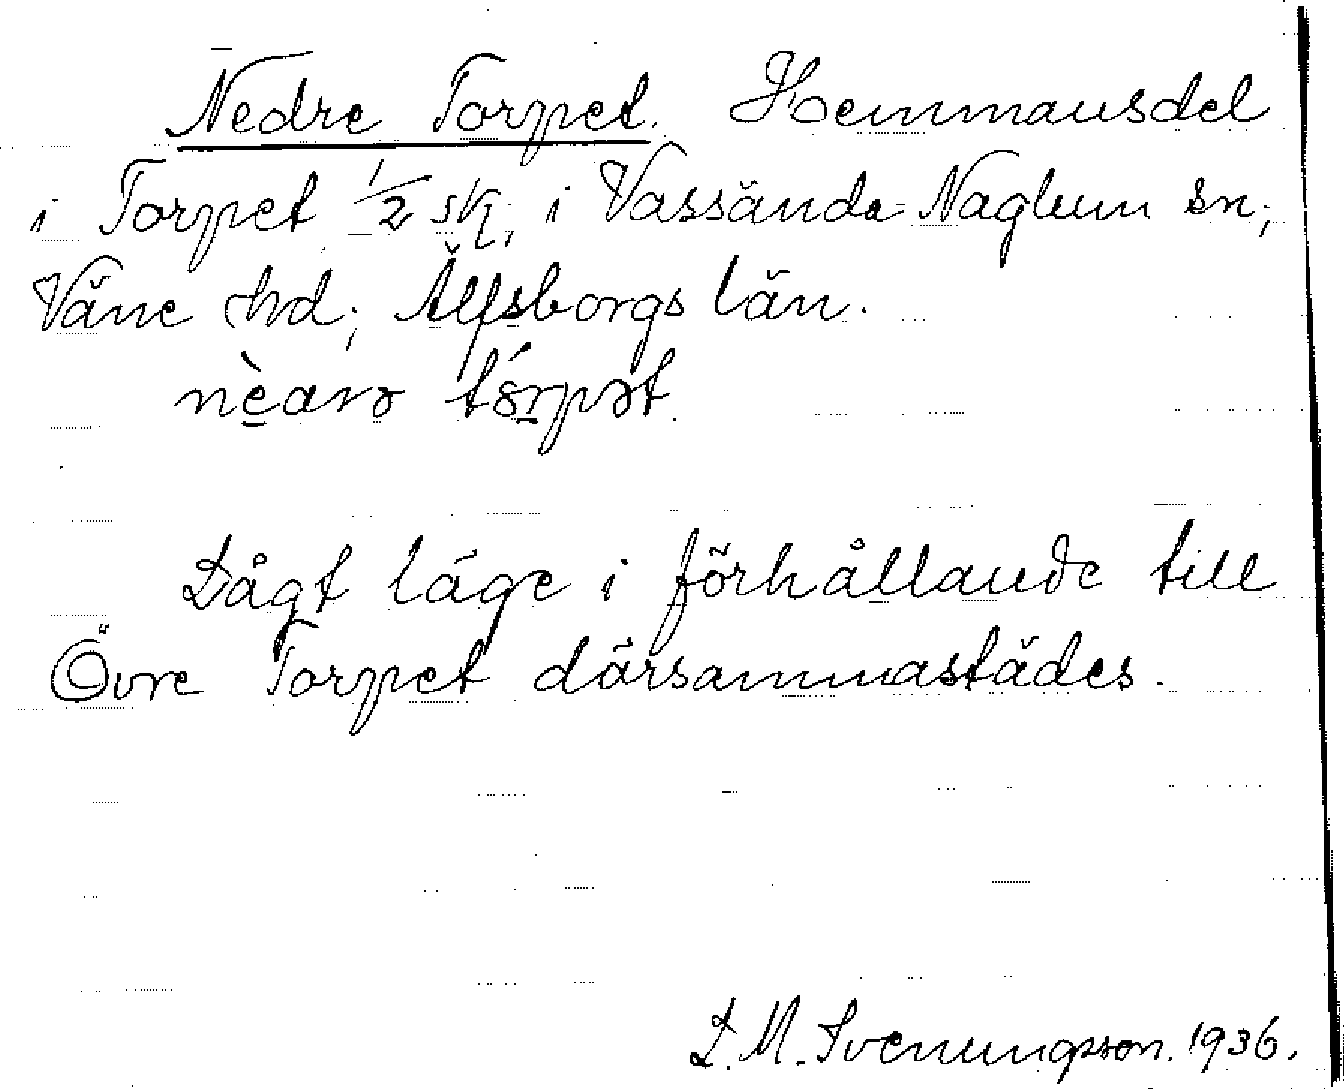 Nedre Torpet. Hemmansdel
i Torpet 1/2 skj, i Vassända-Naglum sn;
Väne hd; Älfsborgs län.
Lågt läge i förhållande till
Övre Torpet därsammastädes.
L. M. Svenungsson. 1936.